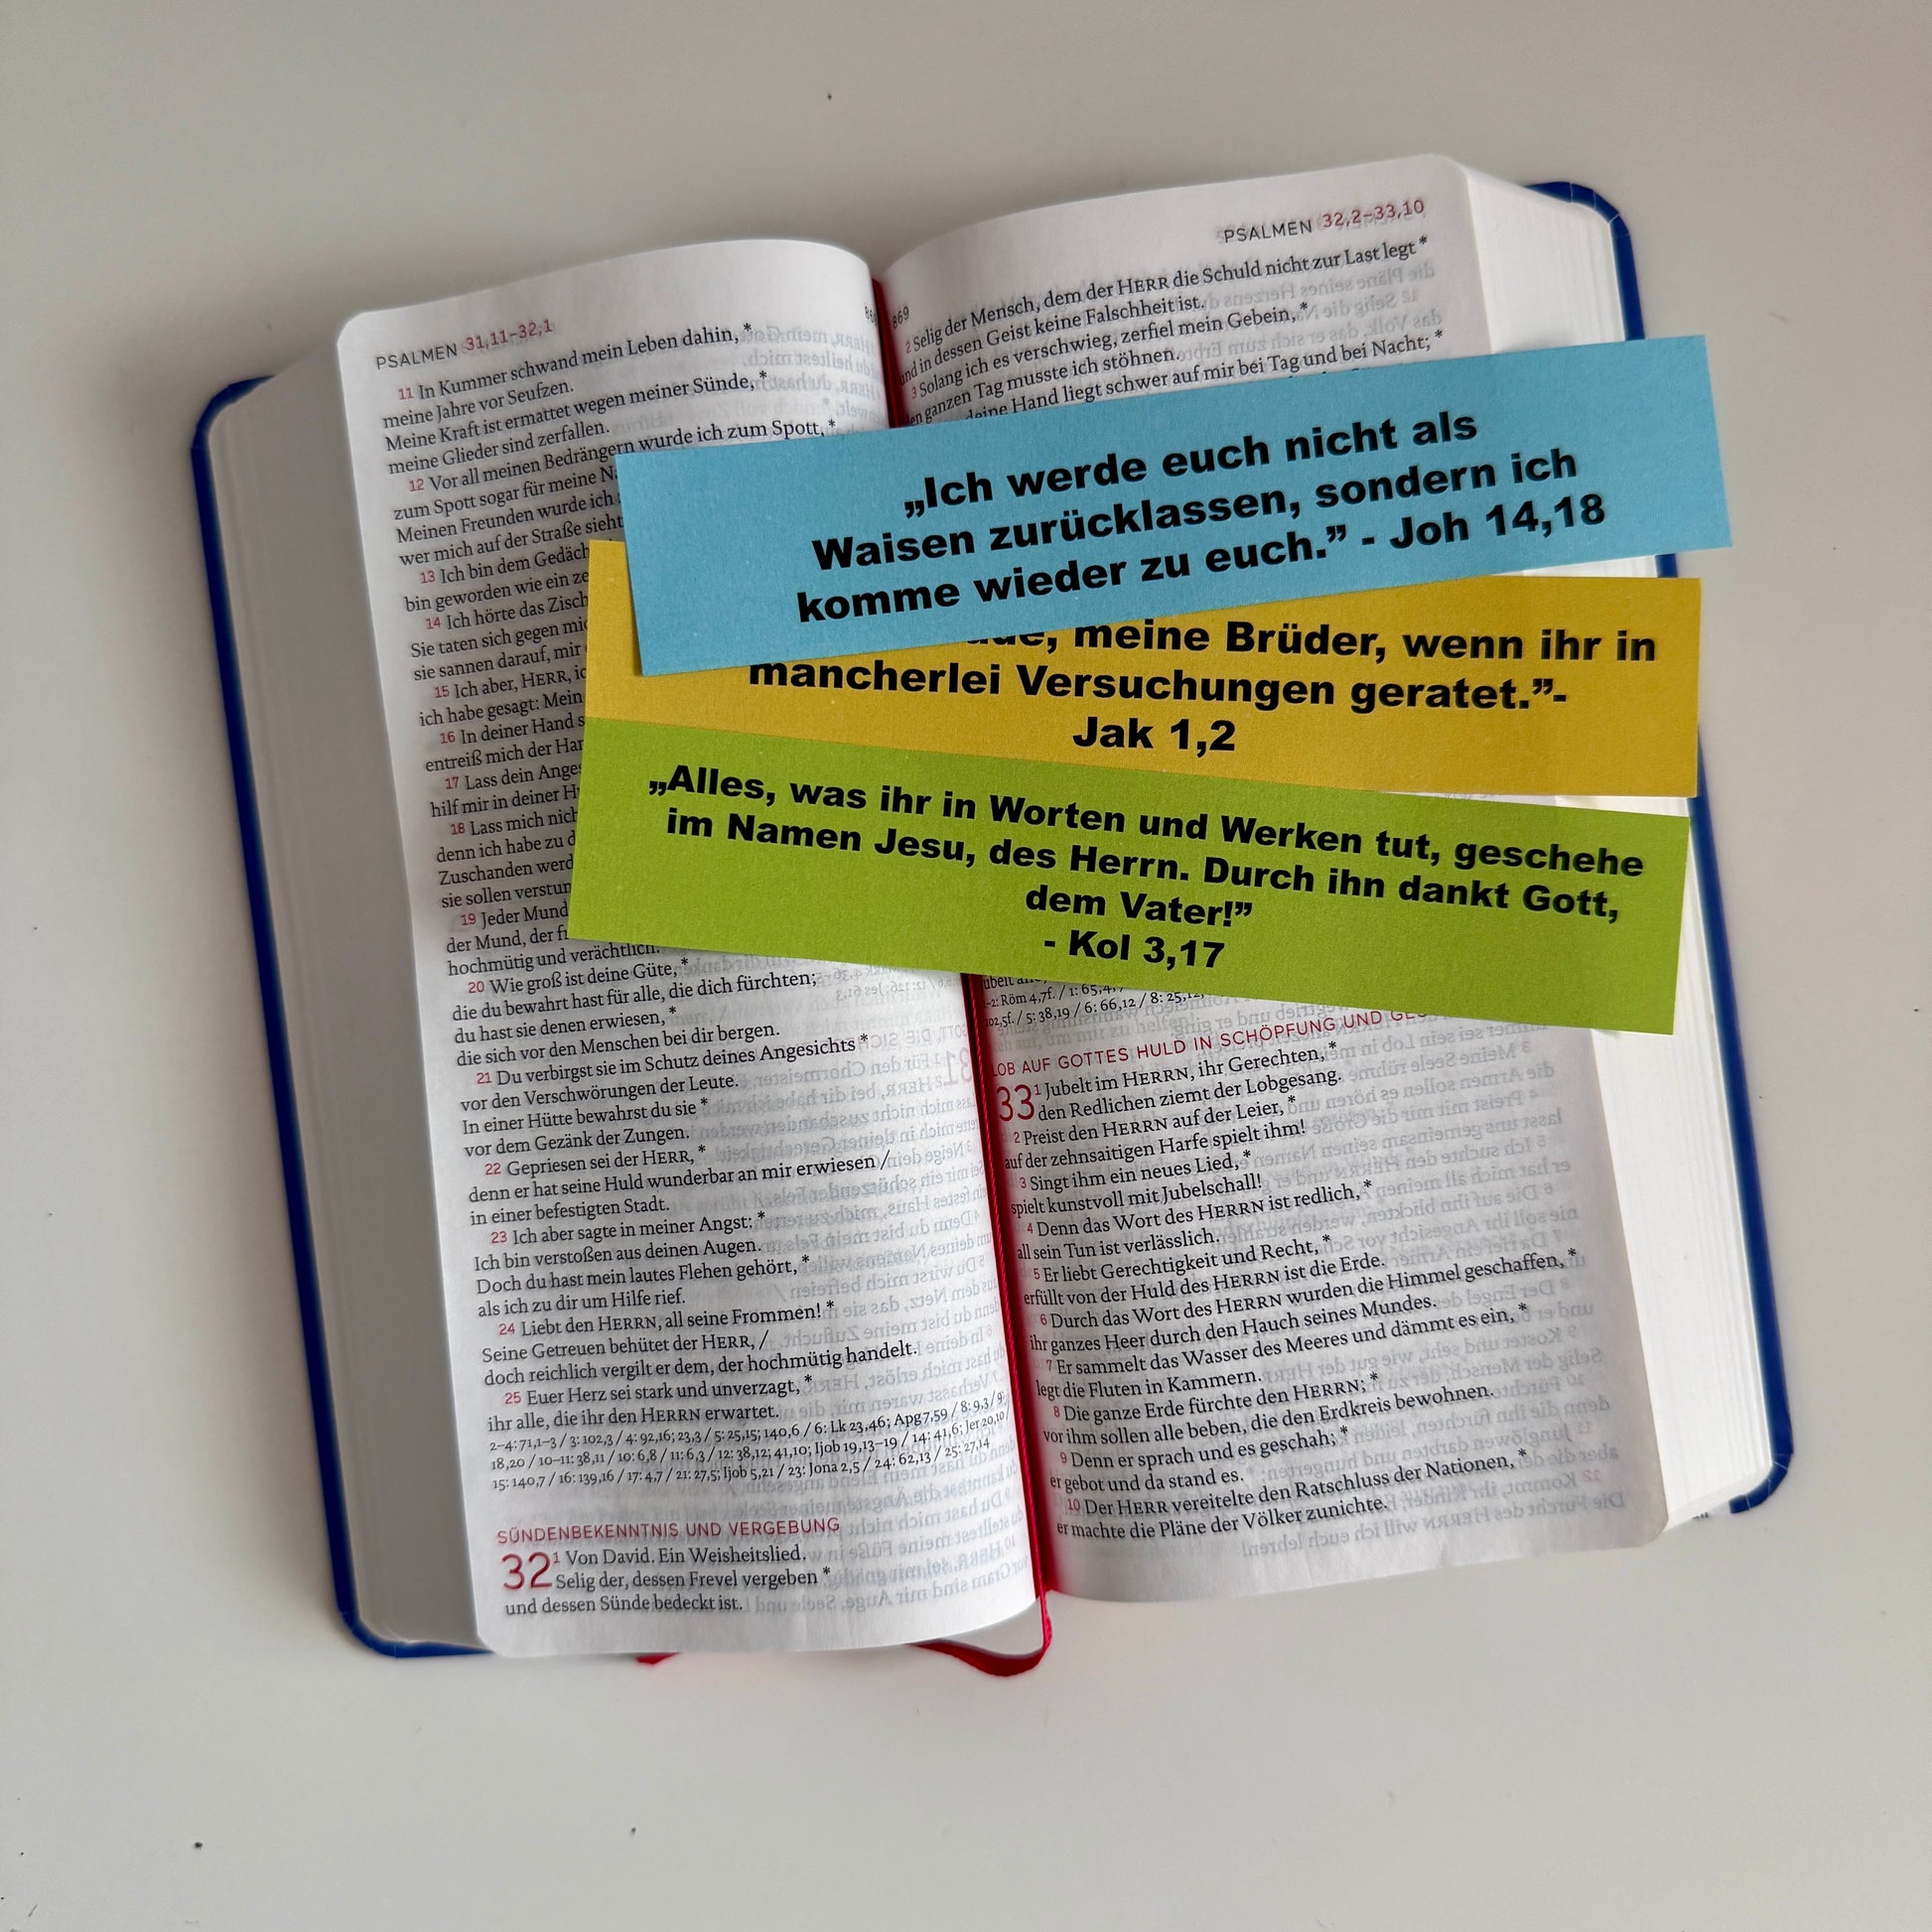 PSALMEN 31,11–32,1
11 In Kummer schwand mein Leben dahin, *
meine Jahre vor Seufzen.
Meine Kraft ist ermattet wegen meiner Sünde, *
meine Glieder sind zerfallen.
12 Vor all meinen Bedrängern wurde ich zum Spott, *
zum Spott sogar für meine
Meinen Freunden wurde ich
wer mich auf der Straße sieht
13 Ich bin dem
bin geworden wie ein
14 Ich hörte das
Sie taten sich gegen
sie sannen darauf, mir
15 Ich aber, HERR,
ich habe gesagt: Mein
16 In deiner Hand
entreiß mich der
17 Lass dein
hilf mir in deiner
18 Lass mich
denn ich habe zu
Zuschanden
sie sollen
19 Jeder Mund
der Mund, der
hochmütig und verächtlich.
20 Wie groß ist deine Güte, *
die du bewahrt hast für alle, die dich fürchten;
du hast sie denen erwiesen, *
die sich vor den Menschen bei dir bergen.
21 Du verbirgst sie im Schutz deines Angesichts *
vor den Verschwörungen der Leute.
In einer Hütte bewahrst du sie *
vor dem Gezänk der Zungen.
22 Gepriesen sei der HERR, *
denn er hat seine Huld wunderbar an mir erwiesen /
in einer befestigten Stadt.
23 Ich aber sagte in meiner Angst: *
Ich bin verstoßen aus deinen Augen.
Doch du hast mein lautes Flehen gehört, *
als ich zu dir um Hilfe rief.
24 Liebt den HERRN, all seine Frommen! *
Seine Getreuen behütet der HERR, /
doch reichlich vergilt er dem, der hochmütig handelt.
25 Euer Herz sei stark und unverzagt, *
ihr alle, die ihr den HERRN erwartet.
2–4: 71,1–3 / 3: 102,3 / 4: 92,16; 23,3 / 5: 25,15; 140,6 / 6: Lk 23,46; Apg 7,59 / 8: 9,3 / 9:
18,20 / 10–11: 38,11 / 10: 6,8 / 11: 6,3 / 12: 38,12; 41,10; Ijob 19,13–19 / 14: 41,6; Jer 20,10 /
15: 140,7 / 16: 139,16 / 17: 4,7 / 21: 27,5; Ijob 5,21 / 23: Jona 2,5 / 24: 62,13 / 25: 27,14
SÜNDENBEKENNTNIS UND VERGEBUNG
32 1 Von David. Ein Weisheitslied.
Selig der, dessen Frevel vergeben *
und dessen Sünde bedeckt ist.
869
PSALMEN 32,2–33,10
2 Selig der Mensch, dem der HERR die Schuld nicht zur Last legt *
und in dessen Geist keine Falschheit ist.
3 Solang ich es verschwieg, zerfiel mein Gebein, *
den ganzen Tag musste ich stöhnen.
deine Hand liegt schwer auf mir bei Tag und bei Nacht; *
„Ich werde euch nicht als
Waisen zurücklassen, sondern ich
komme wieder zu euch.” - Joh 14,18
meine Brüder, wenn ihr in
mancherlei Versuchungen geratet.”-
Jak 1,2
„Alles, was ihr in Worten und Werken tut, geschehe
im Namen Jesu, des Herrn. Durch ihn dankt Gott,
dem Vater!”
- Kol 3,17
1-2: Röm 4,7f. / 1: 65,4;
102,5f. / 5: 38,19 / 6: 66,12 / 8: 25,12;
LOB AUF GOTTES HULD IN SCHÖPFUNG UND
33 1 Jubelt im HERRN, ihr Gerechten, *
den Redlichen ziemt der Lobgesang.
2 Preist den HERRN auf der Leier, *
auf der zehnsaitigen Harfe spielt ihm!
3 Singt ihm ein neues Lied, *
spielt kunstvoll mit Jubelschall!
4 Denn das Wort des HERRN ist redlich, *
all sein Tun ist verlässlich.
5 Er liebt Gerechtigkeit und Recht, *
erfüllt von der Huld des HERRN ist die Erde.
6 Durch das Wort des HERRN wurden die Himmel geschaffen, *
ihr ganzes Heer durch den Hauch seines Mundes.
7 Er sammelt das Wasser des Meeres und dämmt es ein, *
legt die Fluten in Kammern.
8 Die ganze Erde fürchte den HERRN; *
vor ihm sollen alle beben, die den Erdkreis bewohnen.
9 Denn er sprach und es geschah; *
er gebot und da stand es.
10 Der HERR vereitelte den Ratschluss der Nationen, *
er machte die Pläne der Völker zunichte.